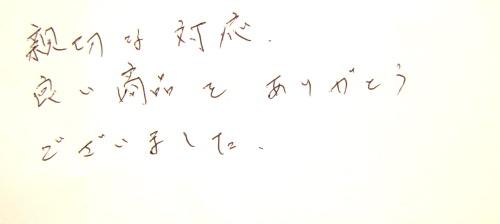 親切な対応.
良い商品をありがとう
ございました.